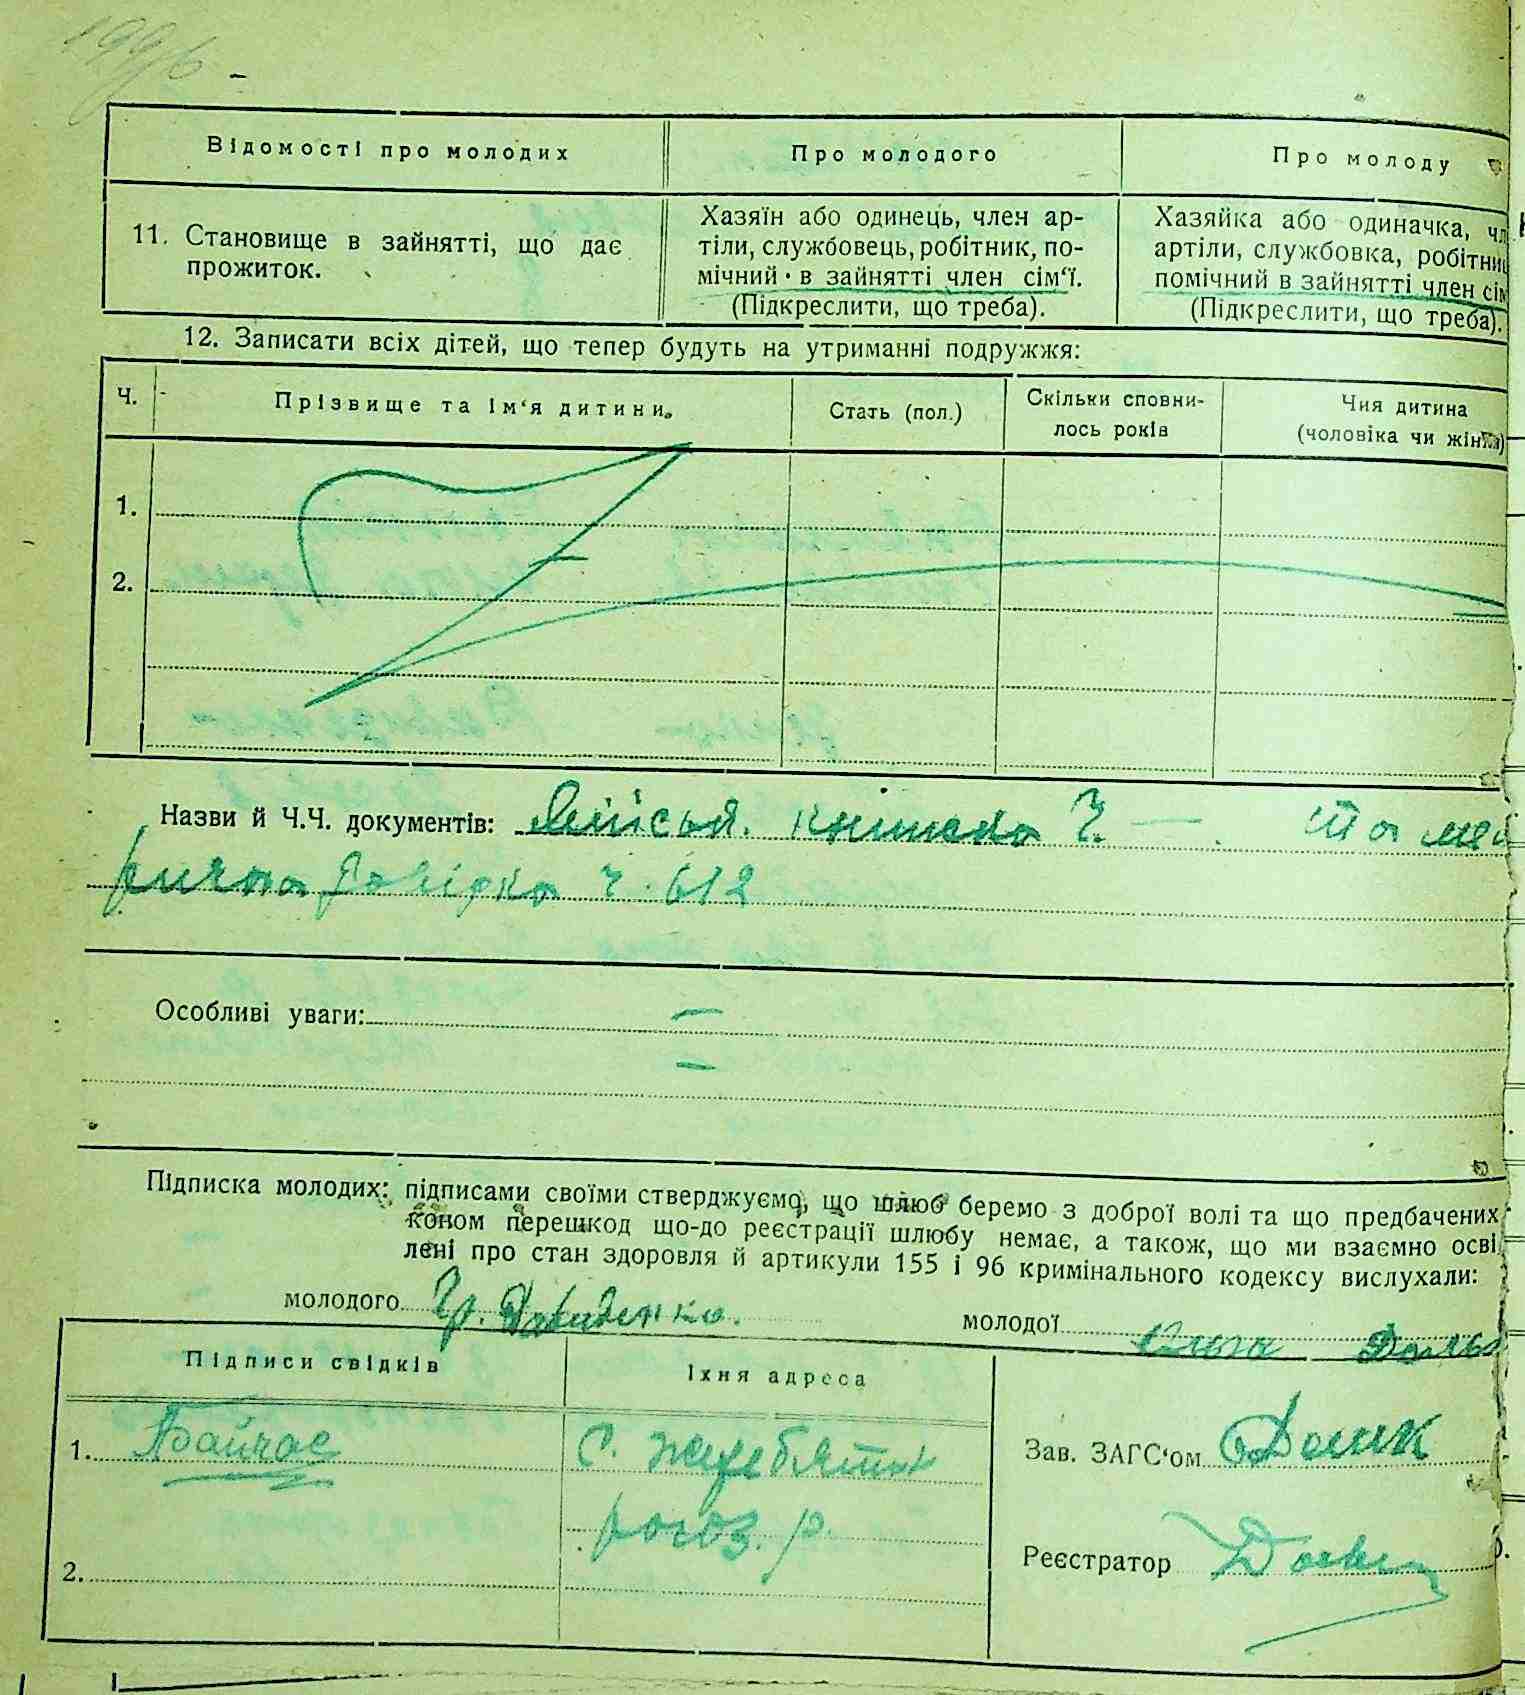 Відомості про молодих
Про молодого
Про молоду
11. Становище в зайнятті, що дає
прожиток.
Хазяїн або одинець, член ар-
тіли, службовець, робітник, по-
мічний в зайнятті член сім'ї.
(Підкреслити, що треба).
Хазяйка або одиначка, чл
артіли, службовка, робітниц
помічний в зайнятті член сім
(Підкреслити, що треба).
12. Записати всіх дітей, що тепер будуть на утриманні подружжя:
Ч.
Прізвище та ім'я дитини
Стать (пол.)
Скільки сповни-
лось років
Чия дитина
(чоловіка чи жінки)
1.
2.
Назви й Ч.Ч. документів: книжка Ч. — та
довірка ч. 612
Особливі уваги: —
—
Підписка молодих: підписами своїми стверджуємо, що шлюб беремо з доброї волі та що предбачених
коном перешкод що-до реєстрації шлюбу немає, а також, що ми взаємно осві
лені про стан здоровля й артикули 155 і 96 кримінального кодексу вислухали:
молодого Гр. Давиденко.
молодої
Підписи свідків
Їхня адреса
1. Байчас
С. Жеребятин
рогоз. р.
2.
Зав. ЗАГС'ом
Реєстратор